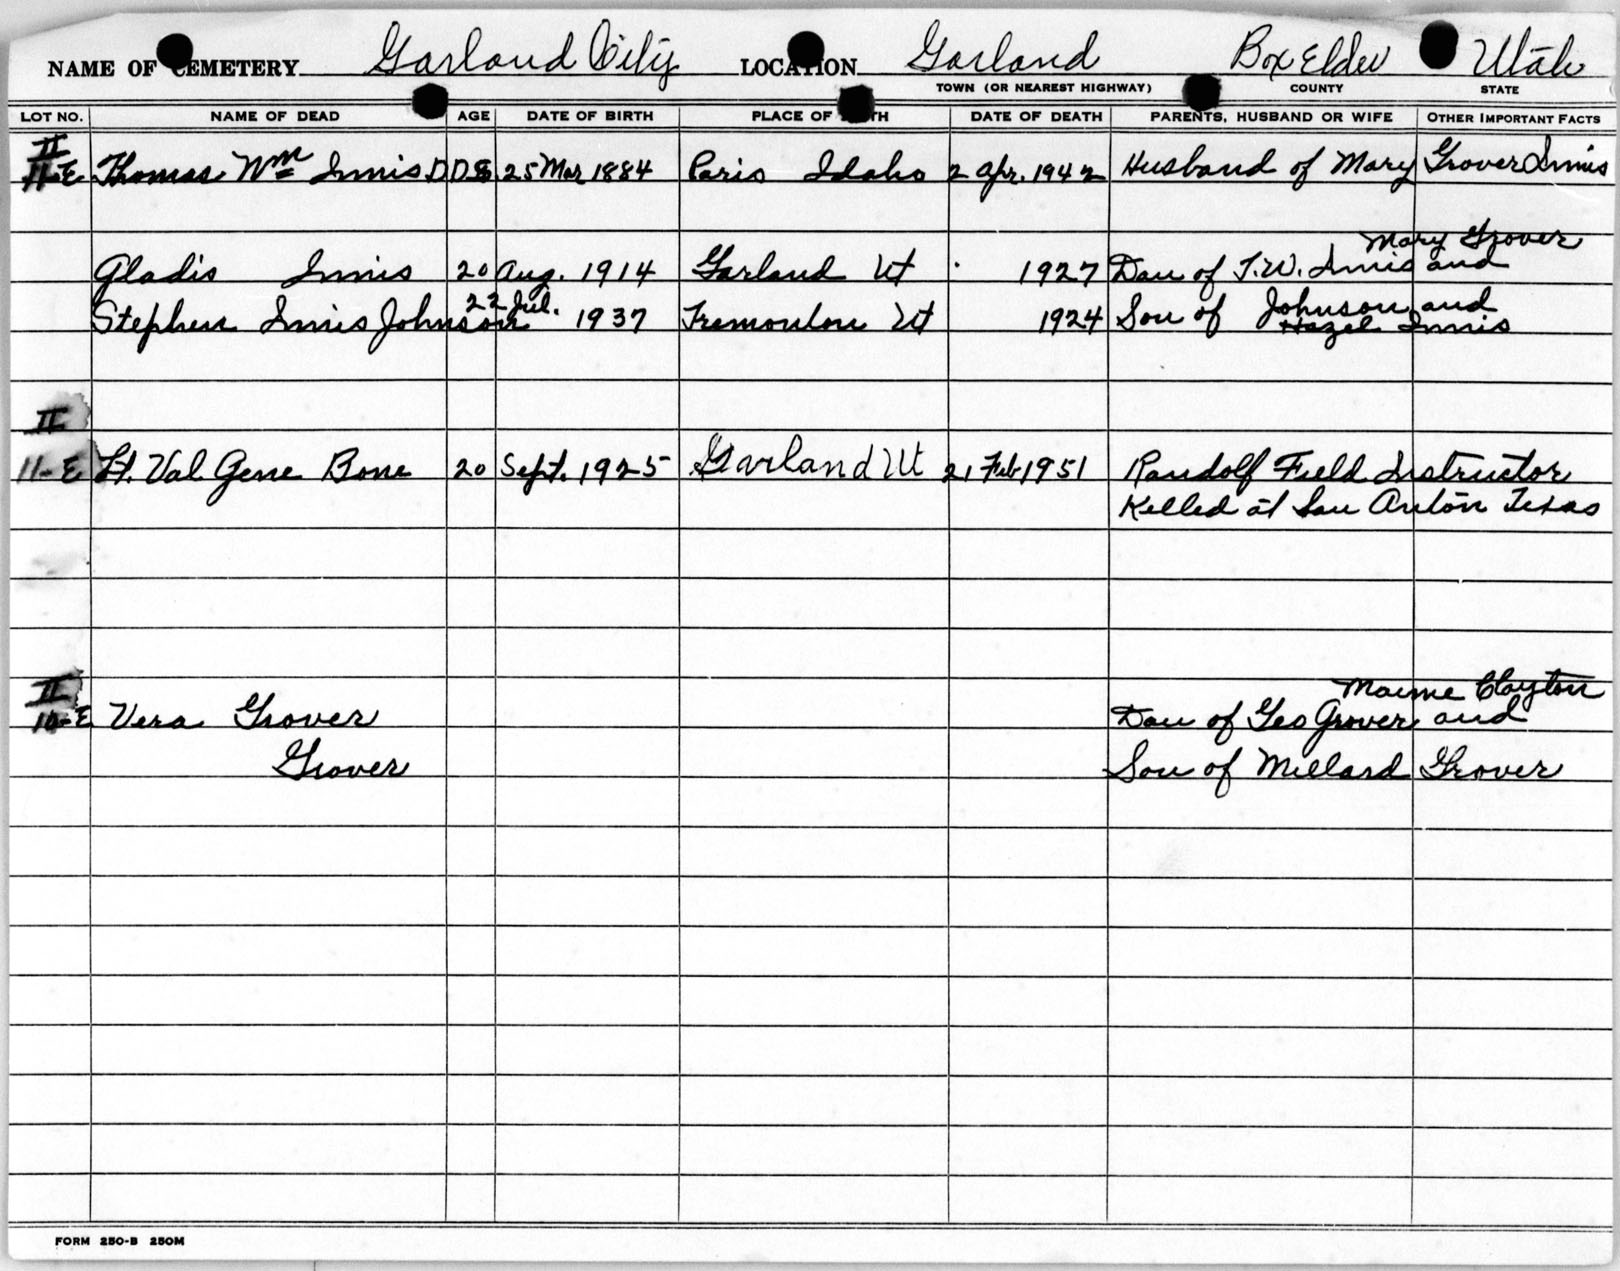 NAME OF CEMETERY Garland City LOCATION Garland Box Elder Utah
TOWN (OR NEAREST HIGHWAY) COUNTY STATE
LOT NO. NAME OF DEAD AGE DATE OF BIRTH PLACE OF TH DATE OF DEATH PARENTS, HUSBAND OR WIFE OTHER IMPORTANT FACTS
II
11-E Thomas Wm Innis D.D.S. 25 Mar 1884 Paris Idaho 2 Apr. 1942 Husband of Mary Grover Innis
Mary Grover
Gladis Innis 20 Aug. 1914 Garland Ut 1927 Dau of T.W. Innis and
Stephen Innis Johnson 22 Jul. 1937 Tremonton Ut 1924 Son of Johnson and
Hazel Innis
II
11-E Lt. Val Gene Bone 20 Sept. 1925 Garland Ut 21 Feb 1951 Randolf Field Instructor
Killed at San Anton Texas
II
10-E Vera Grover Dau of Geo Grover and
Maime Clayton
Grover Son of Millard Grover
FORM 250-B 250M